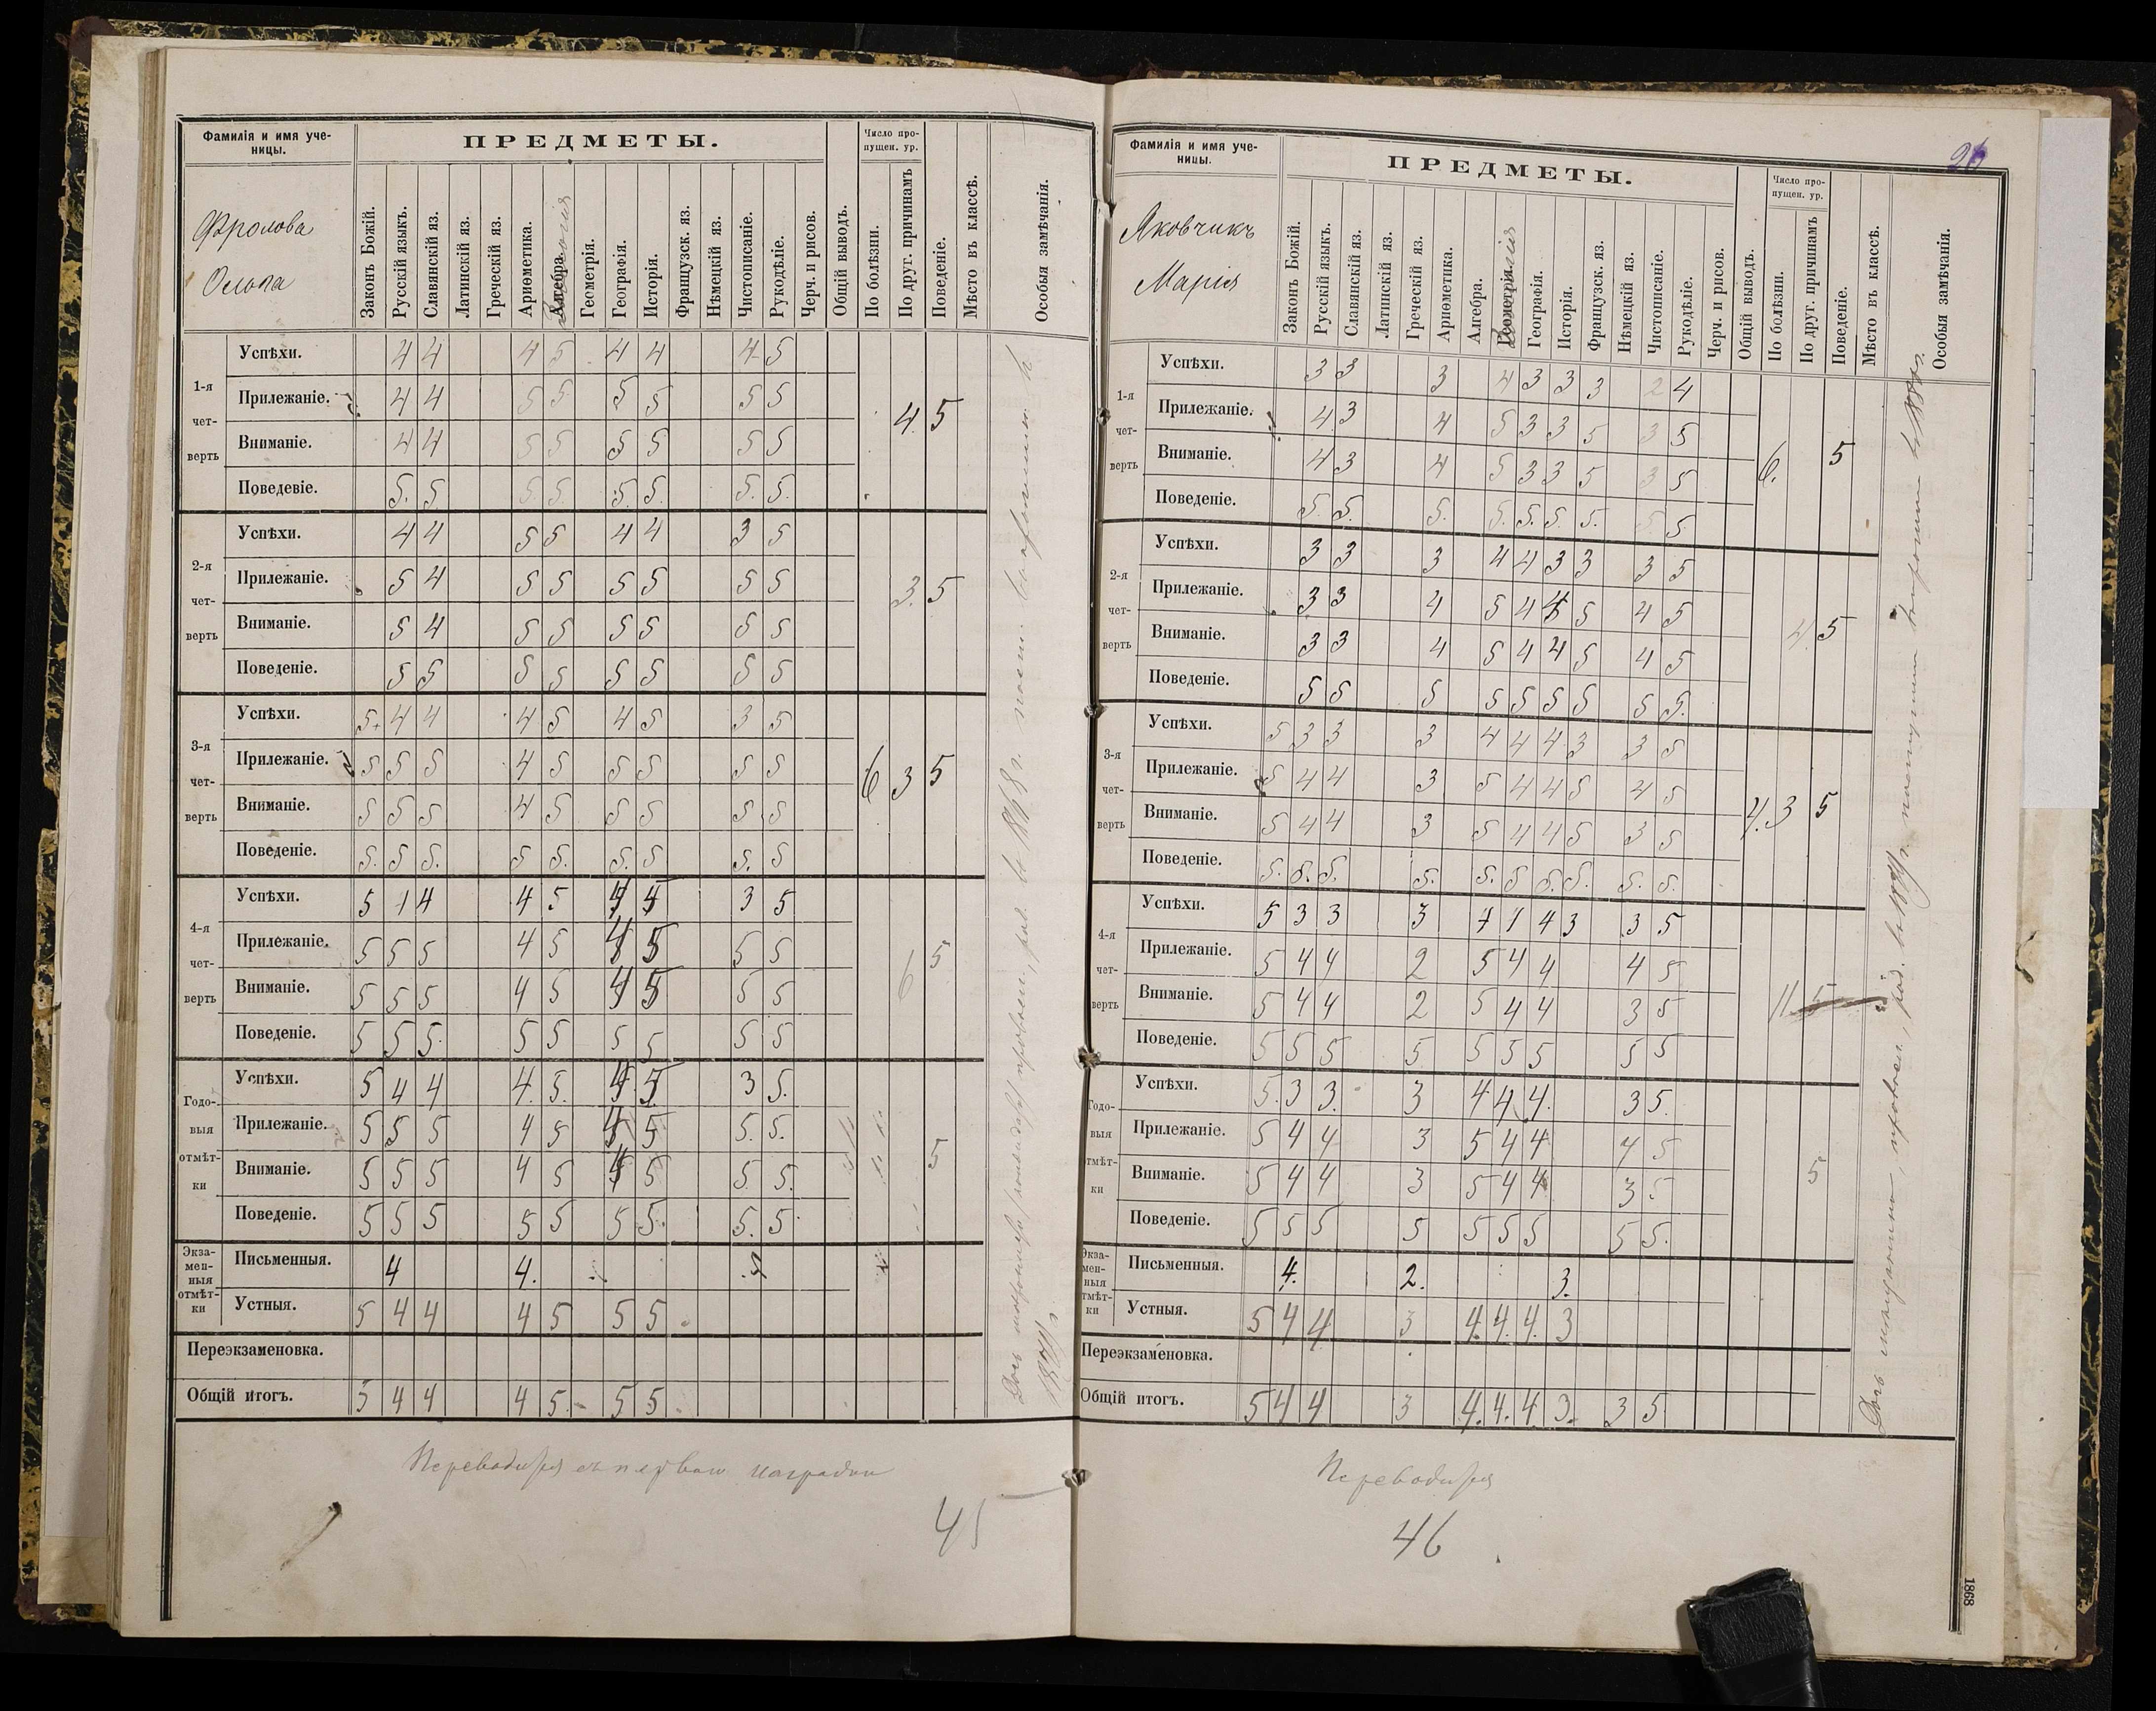 Фамилія и имя уче-
ницы.
ПРЕДМЕТЫ.
Число про-
пущен. ур.
Фролова
Ольга
Законъ Божій.
Русскій языкъ.
Славянскій яз.
Латинскій яз.
Греческій яз.
Ариѳметика.
Алгебра.
Геометрія.
Географія.
Исторія.
Французск. яз.
Нѣмецкій яз.
Чистописаніе.
Рукодѣліе.
Черч. и рисов.
Общій выводъ.
По болѣзни.
По друг. причинамъ
Поведеніе.
Мѣсто въ классѣ.
Особыя замѣчанія.
1-я чет-верть
Успѣхи. 4 4 4 5 4 4 4 5
Прилежаніе. 4 4 5 5 5 5 5 5
Вниманіе. 4 4 5 5 5 5 5 5
Поведевіе. 5. 5 5. 5. 5 5. 5. 5.
4. 5
2-я чет-верть
Успѣхи. 4 4 5 5 4 4 3 5
Прилежаніе. 5 4 5 5 5 5 5 5
Вниманіе. 5 4 5 5 5 5 5 5
Поведеніе. 5 5 5 5 5 5 5 5
3. 5
3-я чет-верть
Успѣхи. 5+ 4 4 4 5 4 5 3 5
Прилежаніе. 5 5 5 4 5 5 5 5 5
Вниманіе. 5 5 5 4 5 5 5 5 5
Поведеніе. 5. 5 5. 5 5. 5. 5 5. 5
6 3 5
4-я чет-верть
Успѣхи. 5 4 4 4 5 4 4 3 5
Прилежаніе. 5 5 5 4 5 4 5 5 5
Вниманіе. 5 5 5 4 5 4 5 5 5
Поведеніе. 5 5 5. 5 5 5 5 5 5
6 5
Годо-выя отмѣт-ки
Успѣхи. 5 4 4 4. 5. 4 5 3 5.
Прилежаніе. 5 5 5 4 5 4 5 5. 5.
Вниманіе. 5 5 5 4 5 4 5 5. 5.
Поведеніе. 5 5 5 5 5 5 5. 5. 5
5
Экза-мен-ныя отмѣт-ки
Письменныя. 4 4. 4
Устныя. 5 4 4 4 5 5 5
Переэкзаменовка.
Общій итогъ. 5 4 4 4 5. 5 5
Переводится съ первою наградою
45
Фамилія и имя уче-
ницы.
ПРЕДМЕТЫ.
Число про-
пущен. ур.
26
Яковчикъ
Марія
Законъ Божій.
Русскій языкъ.
Славянскій яз.
Латинскій яз.
Греческій яз.
Ариѳметика.
Алгебра.
Геометрія.
Географія.
Исторія.
Французск. яз.
Нѣмецкій яз.
Чистописаніе.
Рукодѣліе.
Черч. и рисов.
Общій выводъ.
По болѣзни.
По друг. причинамъ
Поведеніе.
Мѣсто въ классѣ.
Особыя замѣчанія.
1-я чет-верть
Успѣхи. 3 3 3 4 3 3 3 2 4
Прилежаніе. 4 3 4 5 3 3 5 3 5
Вниманіе. 4 3 4 5 3 3 5 3 5
Поведеніе. 5. 5. 5. 5. 5. 5. 5. 5 5
6. 5
2-я чет-верть
Успѣхи. 3 3 3 4 4 3 3 3 5
Прилежаніе. 3 3 4 5 4 4 5 4 5
Вниманіе. 3 3 4 5 4 4 5 4 5
Поведеніе. 5 5 5 5 5 5 5 5 5.
4. 5
3-я чет-верть
Успѣхи. 5 3 3 3 4 4 4 3 3 5
Прилежаніе. 5 4 4 3 5 4 4 5 4 5
Вниманіе. 5 4 4 3 5 4 4 5 3 5
Поведеніе. 5. 5. 5. 5. 5. 5 5. 5. 5. 5.
3 5
4-я чет-верть
Успѣхи. 5 3 3 3 4 4 4 3 3 5
Прилежаніе. 5 4 4 2 5 4 4 4 5
Вниманіе. 5 4 4 2 5 4 4 3 5
Поведеніе. 5 5 5 5 5 5 5 5 5
11 5
Годо-выя отмѣт-ки
Успѣхи. 5. 3 3. 3 4 4 4. 3 5.
Прилежаніе. 5 4 4 3 5 4 4 4 5
Вниманіе. 5 4 4 3 5 4 4 3 5
Поведеніе. 5 5 5 5 5 5 5 5 5.
5
Экза-мен-ныя отмѣт-ки
Письменныя. 4. 2. 3.
Устныя. 5 4 4 3 4. 4. 4. 3
Переэкзаменовка.
Общій итогъ. 5 4 4 3 4. 4. 4 3. 3 5
Переводится
46
1868